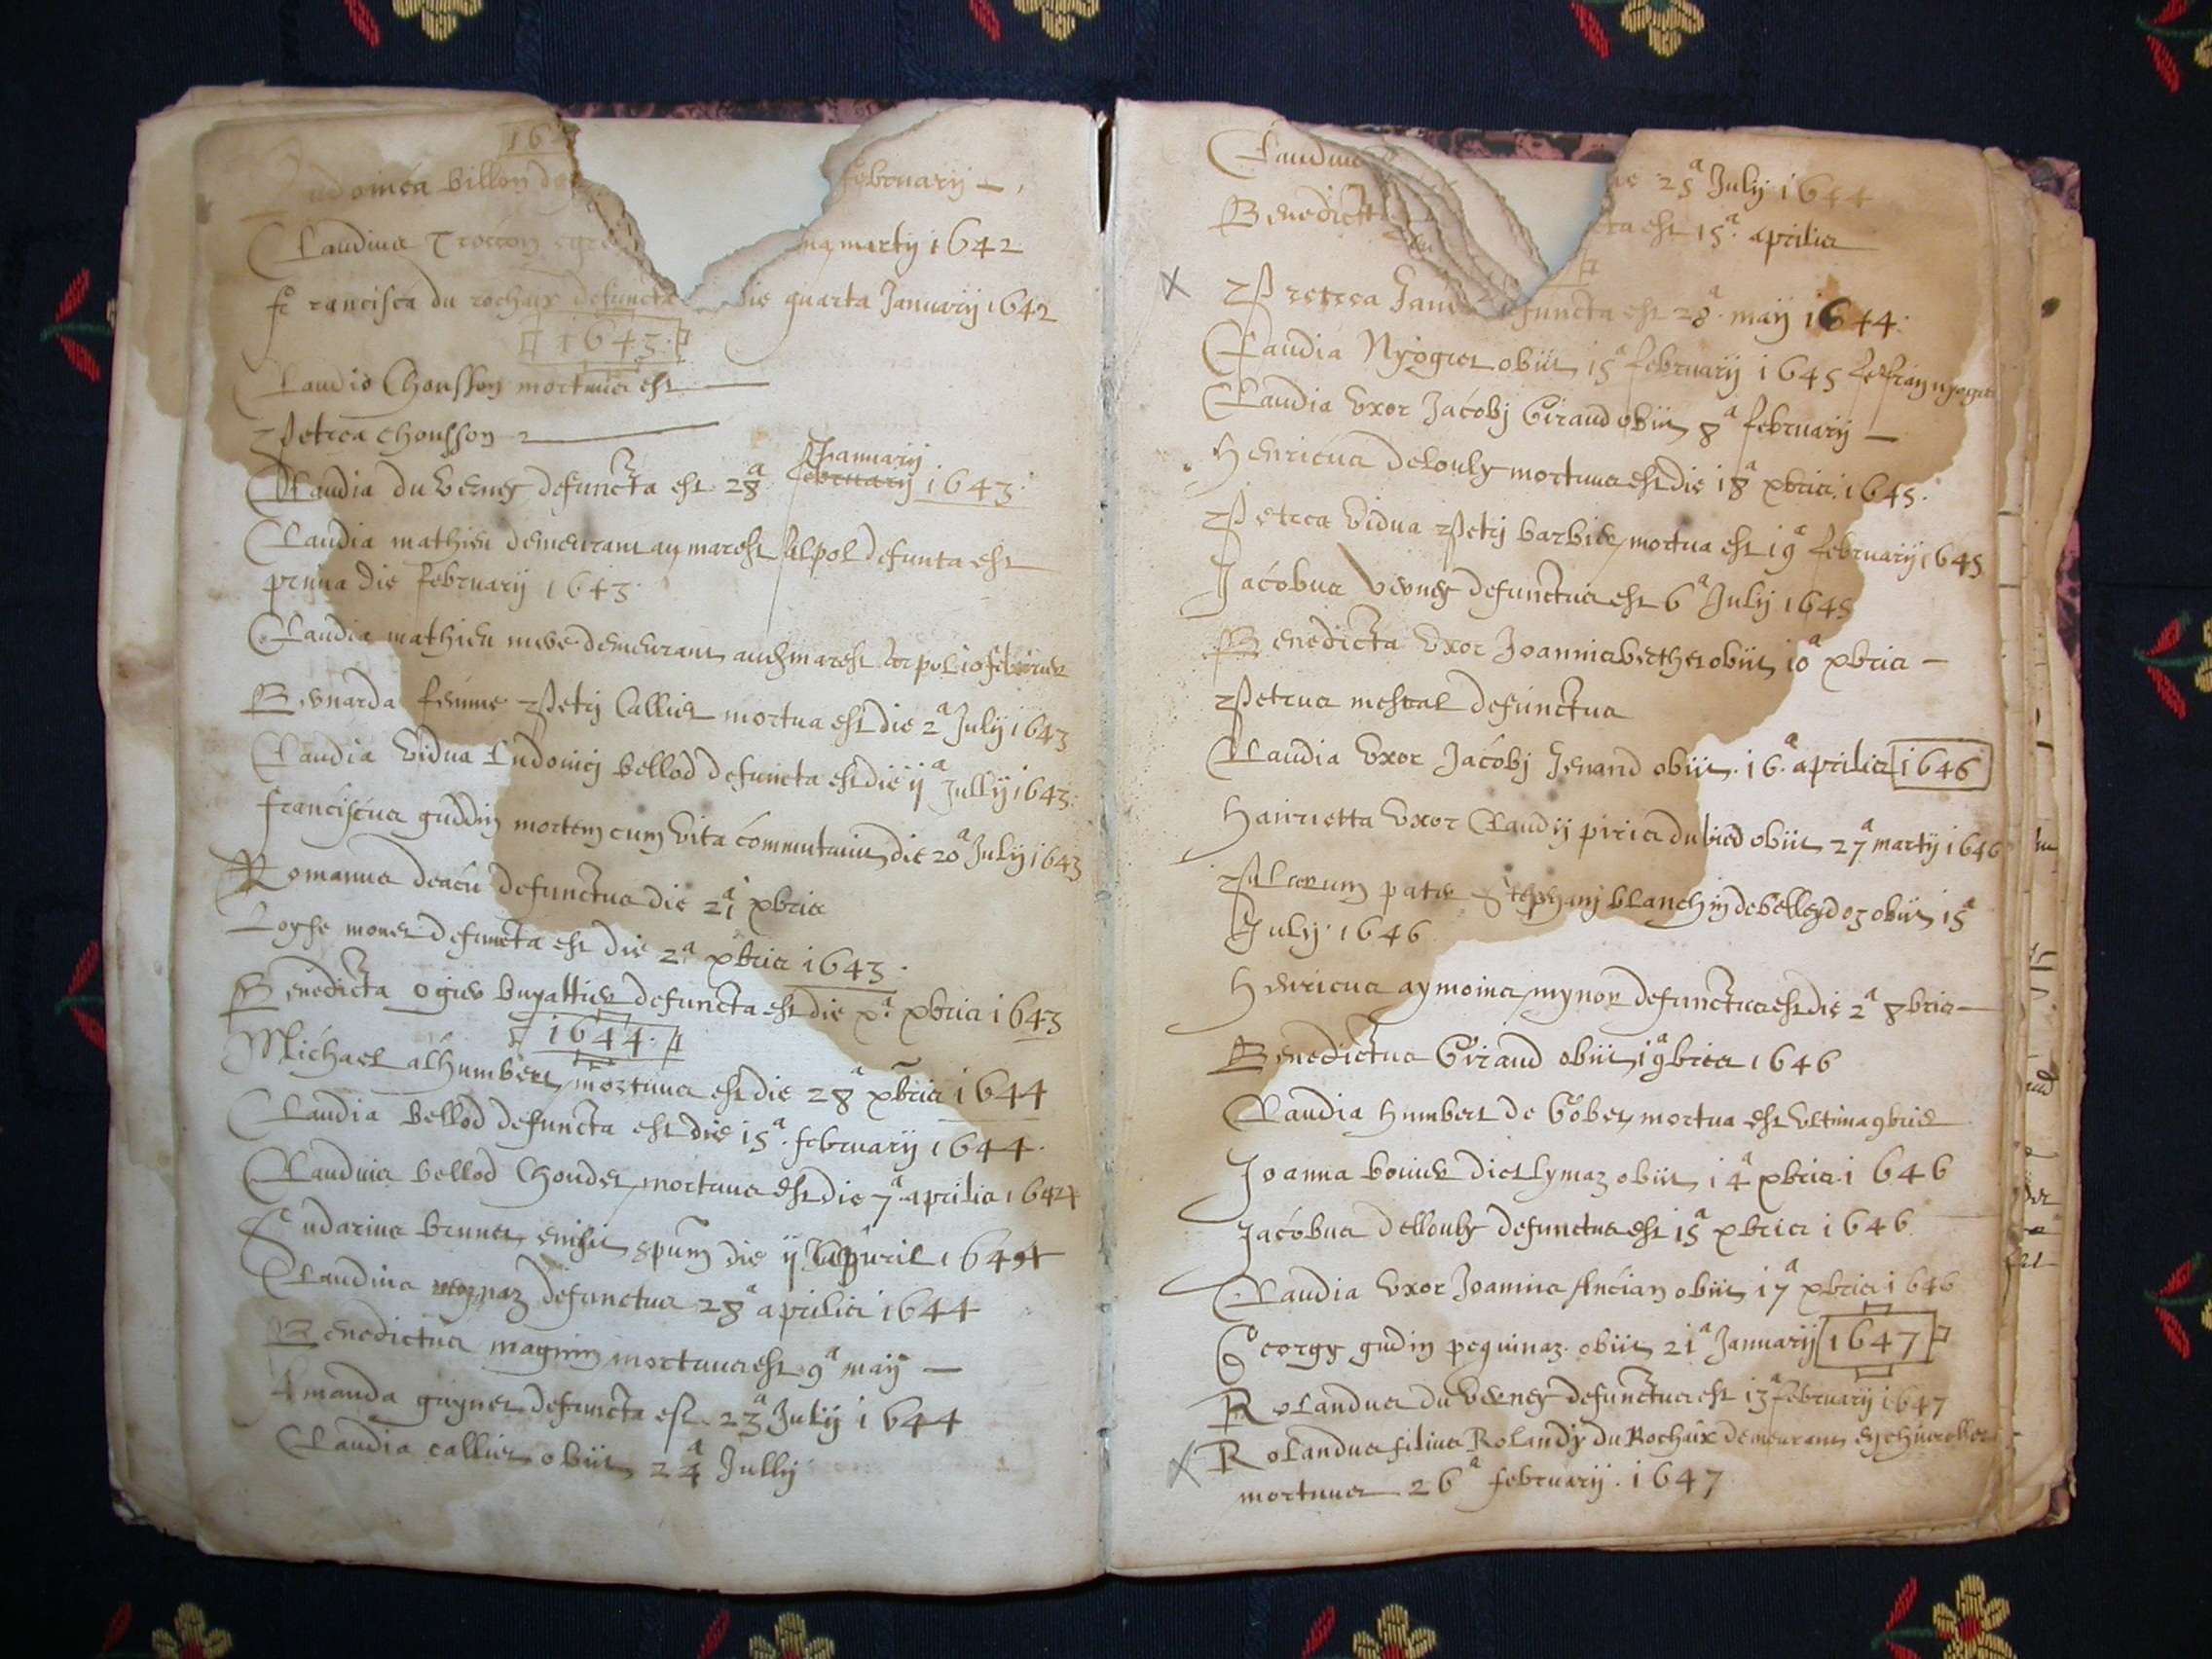 162
Ludovica billon de februarij
Claudius Trocon marty 1642
francisca du rochaix defuncta die quarta Januarij 1642
1643
Claudio Chousson mortuus est
Petrea chousson
Januarij
Claudia du Verney defuncta est 28a februarij 1643
Claudia mathieu demeurant au marest Alpol defunta est
prima die february 1643
Claudia mathieu demeurant
Bernarda femme Petrj Callier mortua est die 2a July 1643
Claudia vidua Ludovicj bellod defuncta est die ija Jullij 1643
franciscus guddin mortem cum vita commutavit die 20a July 1643
Romanus deacu defunctus die 21a xbris
Loyse monet defuncta est die 2a xbris 1643
Benedicta ogier buyattier defuncta est die xa xbris 1643
1644
Michael alhumbert mortuus est die 28a xbris 1644
Claudia bellod defuncta est die 15a februarij 1644
Claudius bellod Choudet mortuus est die 7a aprilis 1644
brunet emisit spum die ij 1644
Claudius defunctus 28a aprilis 1644
Benedictus magnin mortuus est 9a maij
Amanda guynet defuncta est 23a Julij 1644
Claudia callier obiit 24a Jullij
Claudius 25a July 1644
Benedict est 15a aprilis
Petrea Jan defuncta est 28a maij 1644
Claudia Nyogier obiit 15a februarij 1645
Claudia Vxor Jacobj Giraud obiit 8a februarij
Henricus delouly mortuus est die 18a xbris 1645
Petrea vidua Petrj barbier mortua est 19a februarij 1645
Jacobus verney defunctus est 6a July 1645
Benedicta Vxor Joannis berthet obiit 10a xbris
Petrus mestral defunctus
Claudia Vxor Jacobj Jenand obiit 16a aprilis 1646
Hanrietta Vxor Claudij piris du bied obiit 27a martij 1646
pater Stephanj blanchin de belleydoz obiit 15a
July 1646
Henricus aymoins mynor defunctus est die 2a 8bris
Benedictus Giraud obiit 1a 9bris 1646
Claudia humbert de Gobet mortua est Vltima 9bris
Joanna bouvier dict lymaz obiit 14a xbris 1646
Jacobus dellouly defunctus est 15a xbris 1646
Claudia Vxor Joannis Ancian obiit 17a xbris 1646
George gudin pequinaz obiit 21a Januarij 1647
Rolandus du Verney defunctus est 13a february 1647
Rolandus filius Rolandj du Rochaix demeurant
mortuus 26a februarij 1647